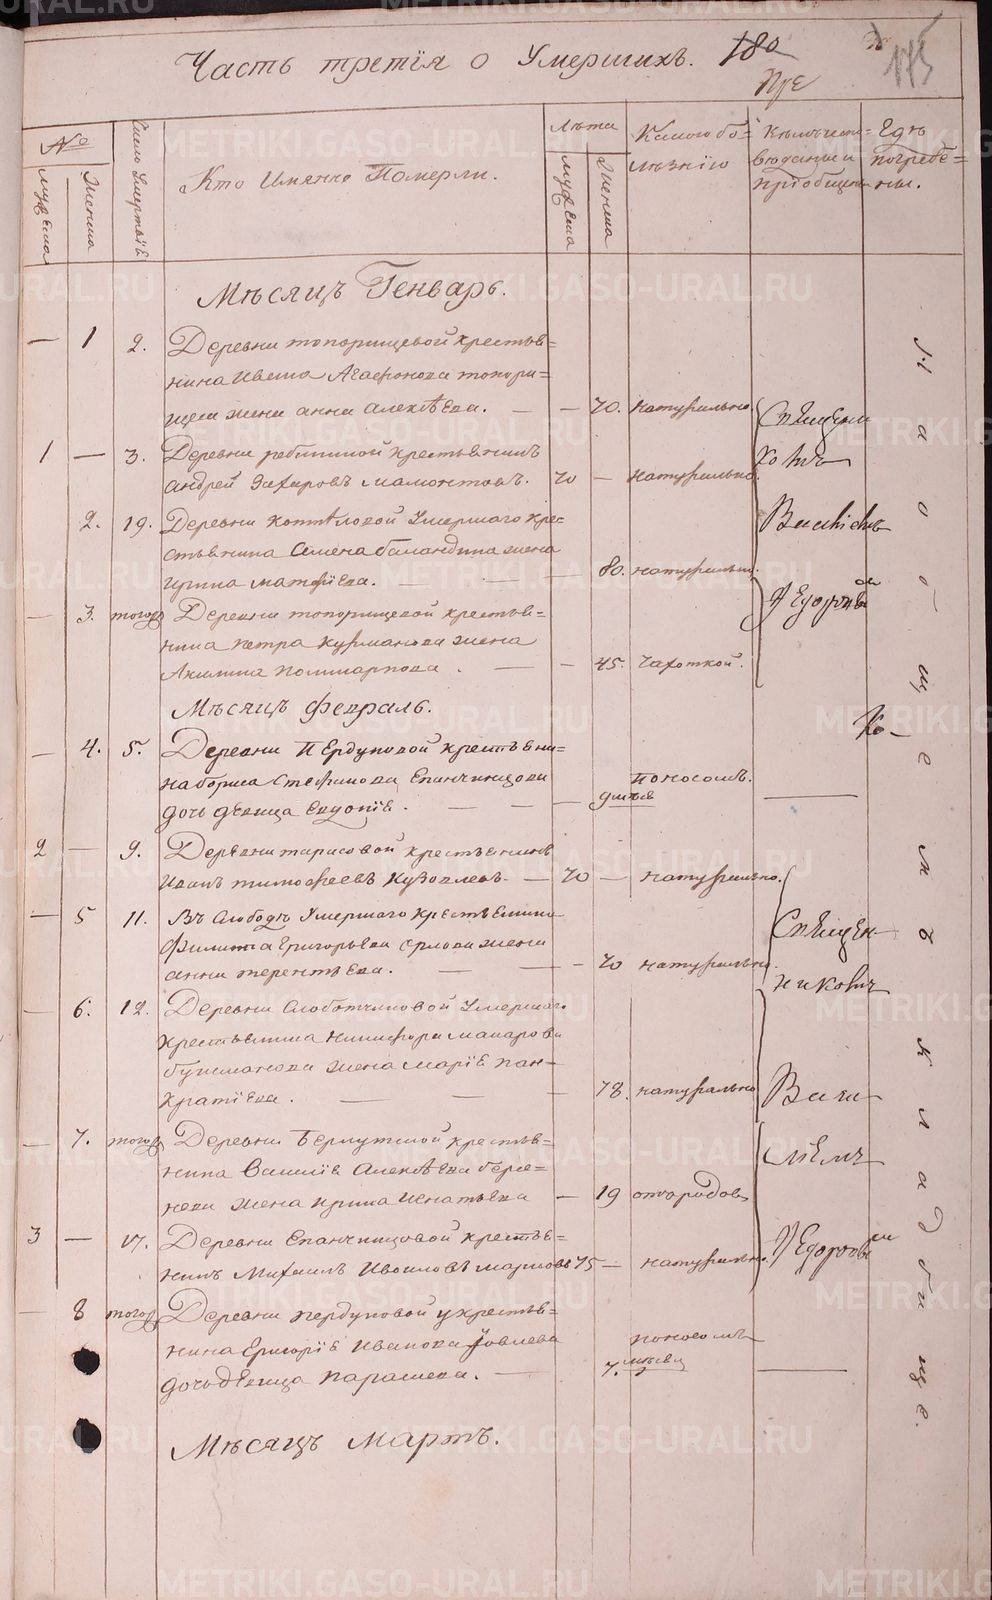 Часть третїя о Умершихъ. 180
175
№
мужеска
Женска
Число Смертей
Кто Имянно Померли.
Лѣта
мужеска
Женска
Какою бо=
лѣзнїю
Кѣмъ испо=
вѣданы и
прїобщены
Гдѣ
погребе=
ны.
Мѣсяцъ Генварь.
— 1 2. Деревни топорищевой крестья=
нина Ивана Агафонова топори=
щева жена анна алексѣева. — — 70. натурально.
1 — 3. Деревни рѣпиной крестьянинъ
андрей Захаровъ мамонтовъ. 70 — натурально.
2. 19. Деревни коптѣловой Умершаго кре=
стьянина Семена баландина жена
ирина матфїева. — — 80. натурально.
— 3. тогоже Деревни топорищевой крестья=
нина петра курманова жена
Акилина поликарпова. — — 45. Чахоткой.
Священни
комъ
Василїемъ
Ѳедоровым
Мѣсяцъ февраль.
— 4. 5. Деревни Пердуновой крестьяни=
на бориса Стефанова Епанчинцова
дочь дѣвица Евдокїя. — — поносомъ.
2 — 9. Деревни тарасовой крестьянинъ
Иванъ тимофеевъ Кузовлевъ. — 70 — натурально.
— 5 11. Въ Слободѣ Умершаго крестьянина
Филипа Григорьева орлова жена
анна терентьева. — — 70 натурально.
— 6. 12. Деревни Слободчиковой Умершаго
крестьянина никифора макарова
бушманова жена марїя пан=
кратїева. — — 78. натурально
— 7. тогоже Деревни Бермутской крестья=
нина Василїя Алексѣева бере=
нева жена ирина игнатьева — 19 отъ родовъ
3 — 17. Деревни Епанчинцовой крестья=
нинъ Михаилъ Ивановъ 75 — натурально.
Священ
никомъ
Васи
лїемъ
Ѳедоровым
— 8 тогоже Деревни пердуновой у крестья=
нина Григорїя Иванова Іовлева
дочь дѣвица парасковья. — 7. поносомъ
Мѣсяцъ мартъ.
На общемъ кладбище.
METRIKI.GASO-URAL.RU